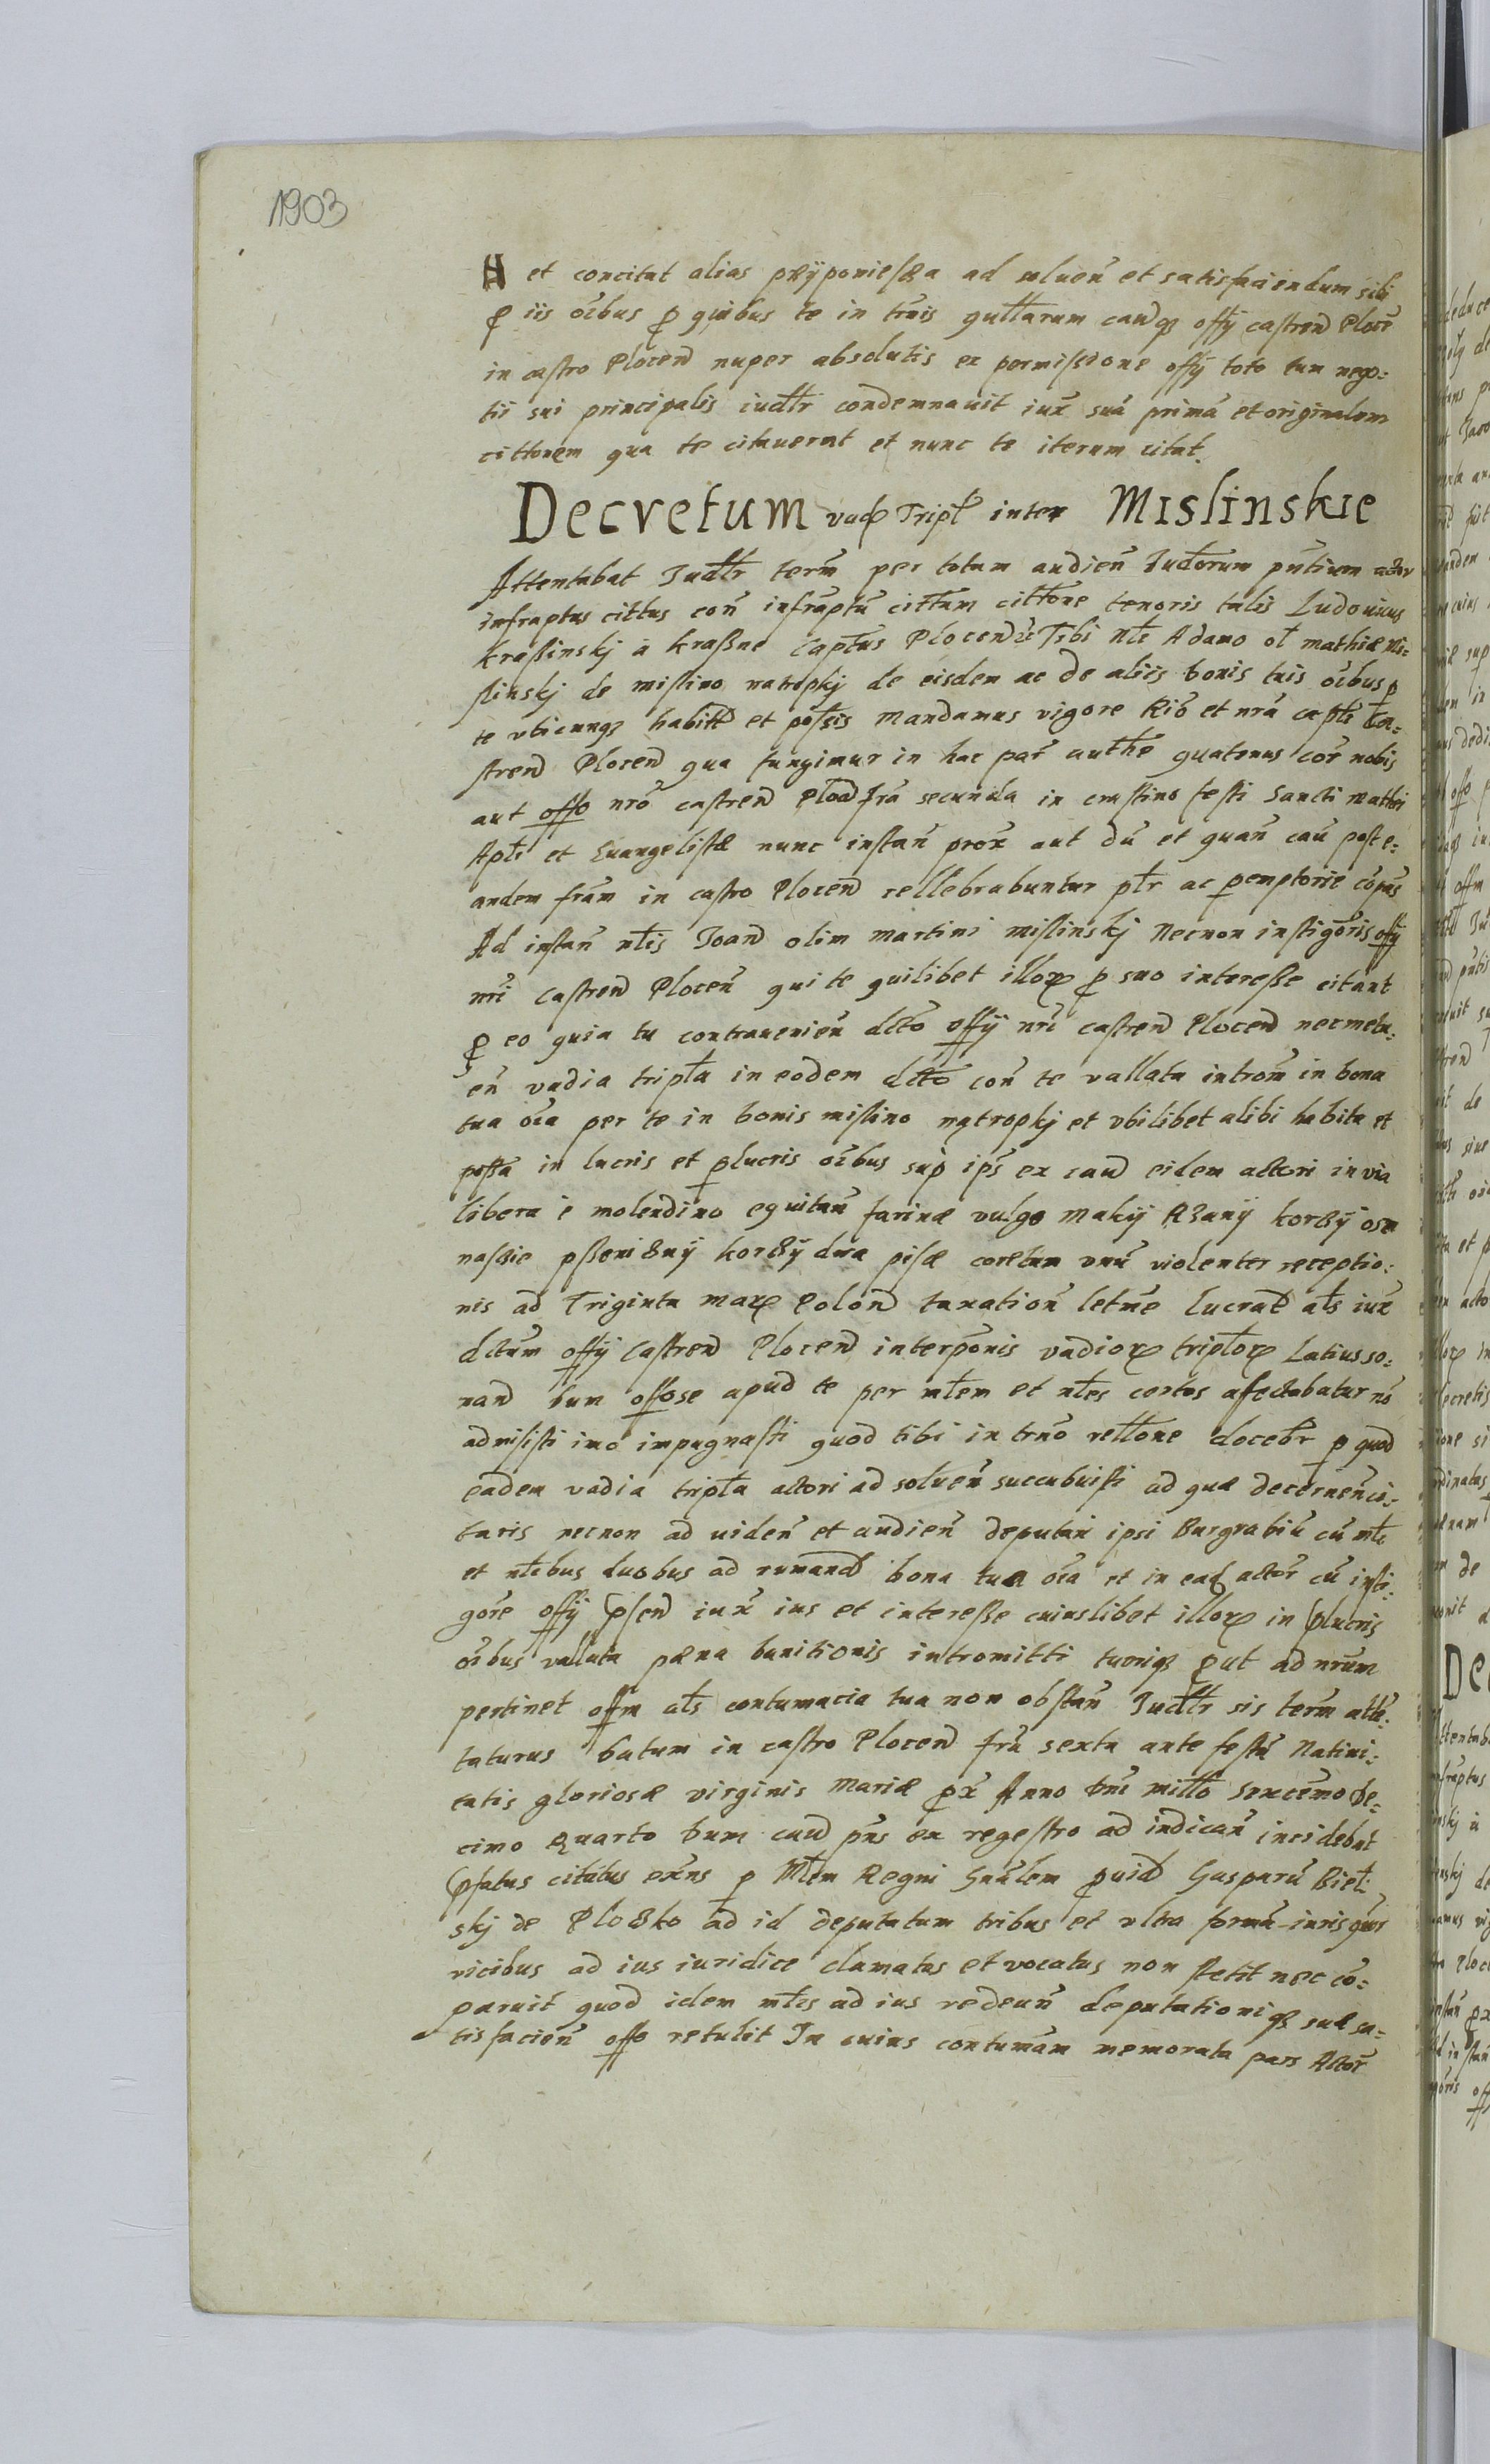 1903
et concitat alias przyponieszka ad soluen̄ et satisfaciendum sibi
p iis oĩbus p quibus te in trm̃is qu̅l̅arum cauq offÿ castren̄ Ploc̃
in castro Plocen̄ nuper absolutis ex permissione offÿ toto tun nego=
tii sui principalis iudl̃r condemnauit iux̃ suã primã et originalem
cittonem qua te citauerat et nunc te iterum citat.
Decretum vad Tripl̃ inter Mislinskie
Attentabat Judl̃r term̃ per totum audien̄ Judtorum pn̄tium actor
infraptus cittus con̄ infrãptũ cittum cittone tenoris talis Ludouicus
krassinskj à krassne Captus Plocen̄ Tibi Nl̃i Adamo ol̃ mathiæ Mi=
slinskj de mislino natropkj de eisdem ac de aliis bonis tuis oĩbus p
te vbicunq habitt̃ et possis mandamus vigore Rio et nrã captl̃i Ca=
stren̄ Plocen̄ qua fungimur in hac par̃ autht̃e quatenus cor̃ nobis
aut offo nrõ castren̄ Plocn̄ frã secunda in crastino festi Sancti Mathei
Apl̃i et Euangelistæ nunc instan̄ prox̃ aut dũ et quan̄ cau post e=
andem frãm in castro Plocen̄ cellebrabuntur pl̃r ac pemptorie cõpãs
Ad instan̄ nl̃is Joan̄ olim martini mislinskj Necnon instigõris offÿ
nrĩ Castren̄ Plocen̄ qui te quilibet illor p suo interesse citant
p eo quia tu contrauenien̄ dctõ offÿ nrĩ castren̄ Plocen̄ nec metu=
en̄ vadia tripl̃a in eodem dctõ con̄ te vallata introm̃ in bona
tua oĩa per te in bonis mislino nątropkj et vbilibet alibi habita et
possa in lucris et plucris oĩbus sup ips̃ ex cau eidem actori in via
libera è molendino equitan̄ farinæ vulgo makij Rzanij korczÿ osm
nascie pszenicznij korczÿ dwa pisæ coretum vnũ violenter receptio=
nis ad Triginta mar Polon̄ taxation̄ letme lucrat al̃s iux̃
dctũm offÿ Castren̄ Plocen̄ interpõnis vadior triplor Latius so=
nan̄ dum offose apud te per ml̃em et nl̃es certos afectabatur nõ
admisisti imo impugnasti quod tibi in trnõ rellone docebr̃ p quod
eadem vadia tripl̃a actori ad soluen̄ succubuisti ad quæ decernen̄ ci=
taris necnon ad uiden̄ et audien̄ deputari ipsi Burgrabiũ cũ ml̃e
et nl̃ibus duobus ad runand̄ bona tua oĩa et in ead actõr cũ insti=
gõre offÿ psen̄ iux̃ ius et interesse cuiuslibet illor in plucris
oĩbus vallata pæna banitionis intromitti tuoriq put ad nrũm
pertinet offm al̃s contumacia tua non obstan̄ Judl̃r sis term̃ atte=
taturus Datum in castro Plocen̄ frã sexta ante festũ Natiui=
tatis gloriosæ virginis Mariæ px̃ Anno Dnĩ mill̃o sexcen̄mo De=
cimo Quarto Dum cau pn̄s ex regestro ad iudican̄ incidebat
pfatus citatus exn̄s p Ml̃em Regni Gnãlem puid Gasparũ Biel=
skj de Ploczko ad id deputatum tribus et vltra formã iuris quor
vicibus ad ius iuridice clamatus et vocatus non stetit nec cõ=
paruit quod idem ml̃es ad ius redeun̄ deputationiq suæ sa=
tisfacien̄ offo retulit In cuius contumãm memorata pars Actor̃